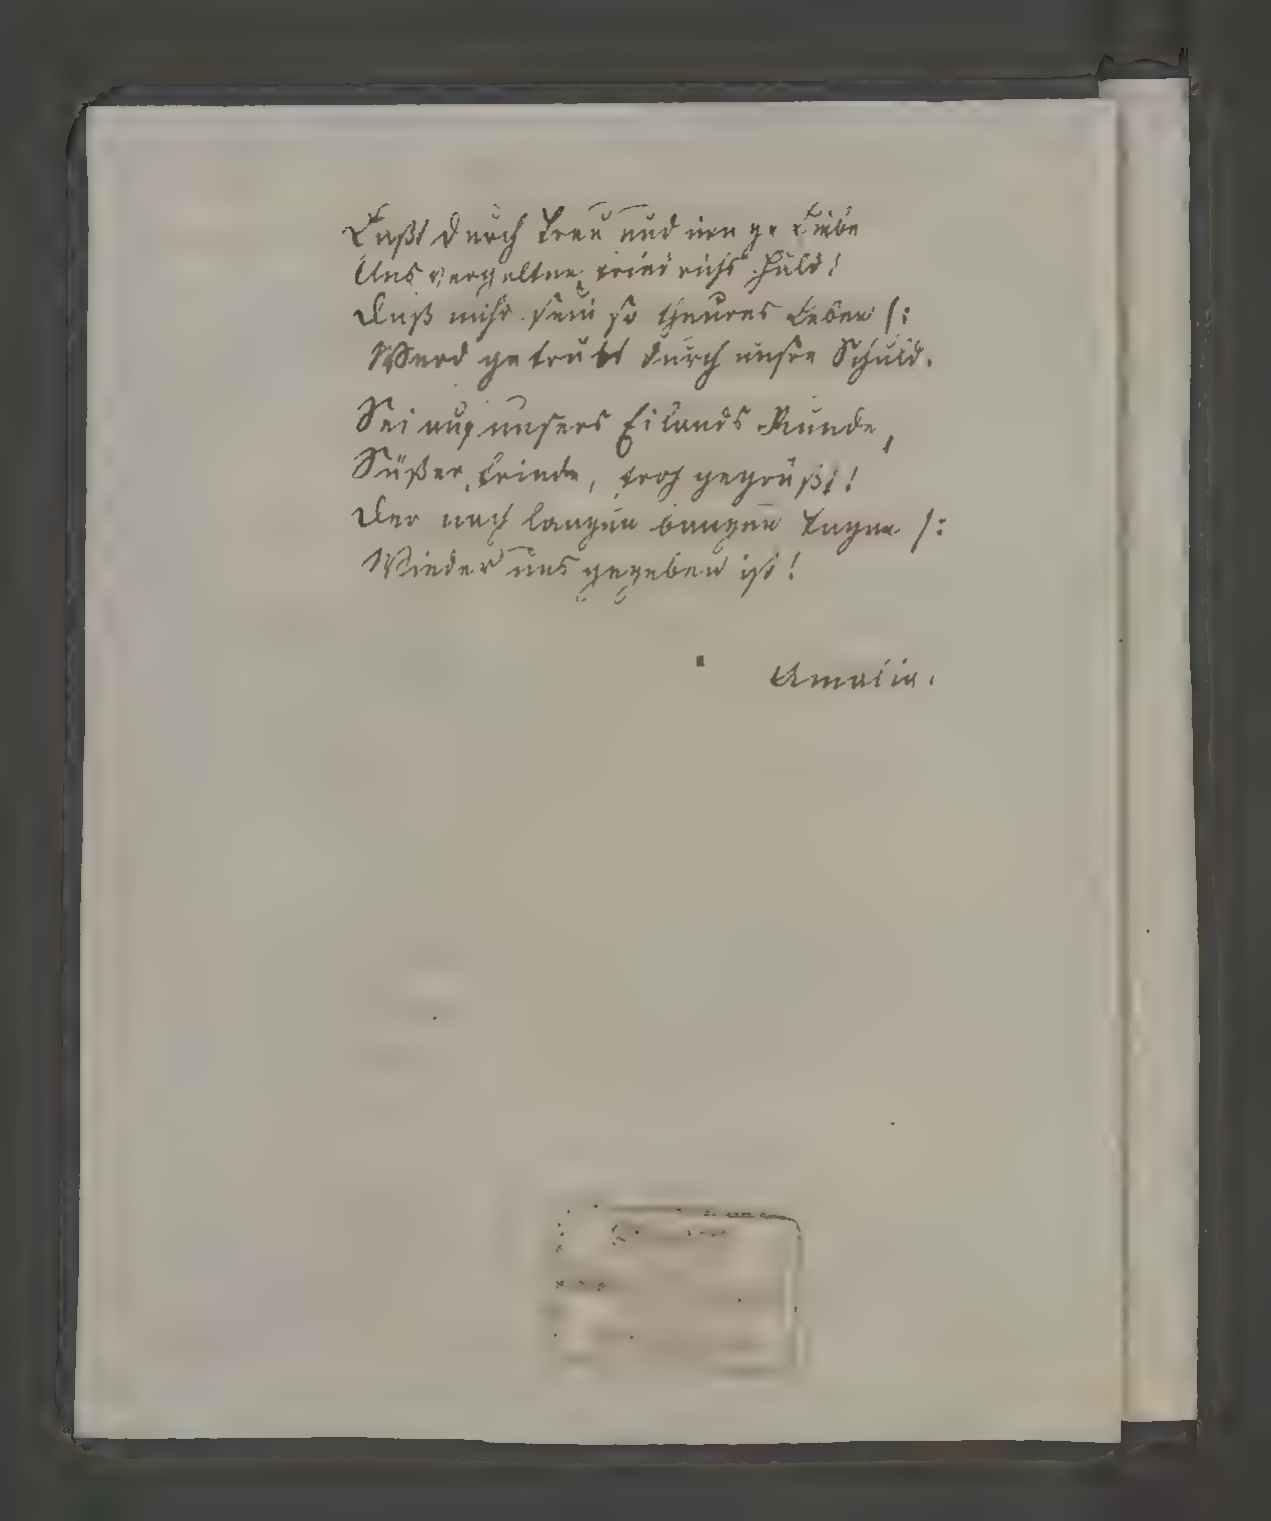 Laßt durch Treu und innge Liebe
Uns vergelten Friedrichs Huld!
Daß nicht sein so theures Leben /:
Werd getrübt durch unsre Schuld.
Sei auf unsers Eilands Runde,
Süßer Friede, froh gegrüßt!
Der nach langen bangen Tagen /:
Wieder uns gegeben ist!
Amalia.